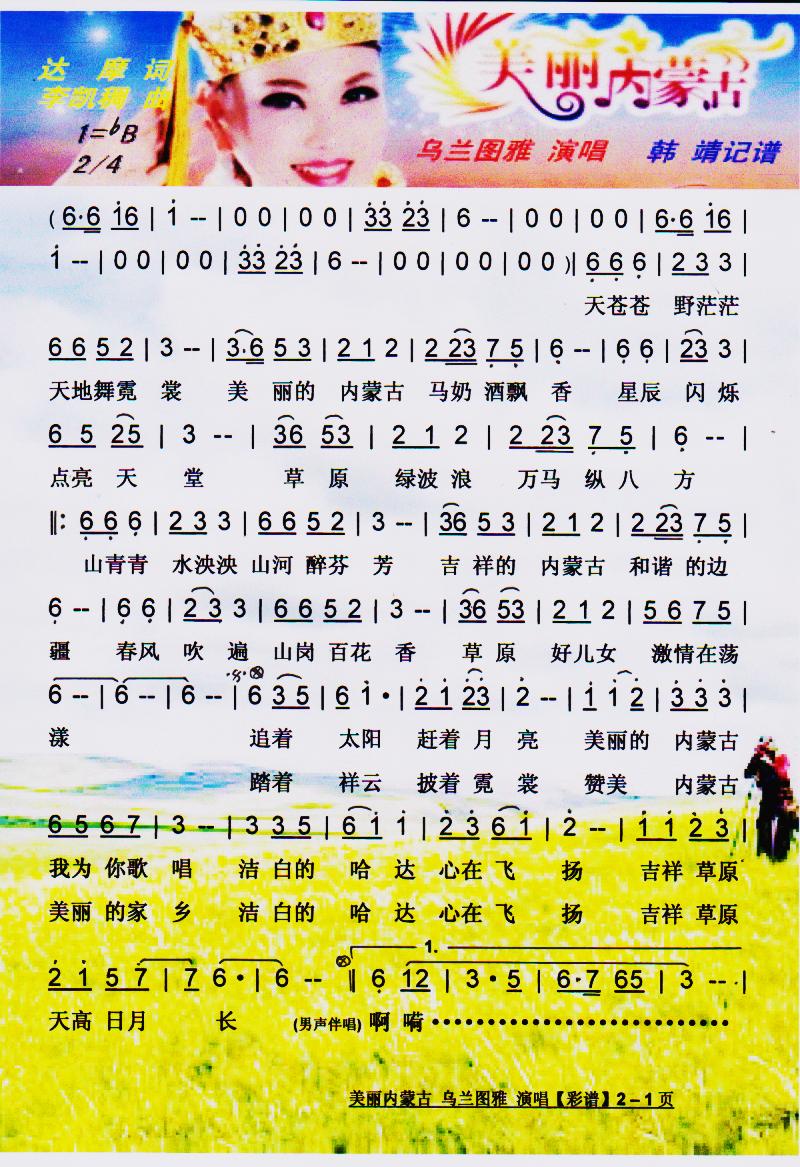 美丽内蒙古
达 摩 词
李凯稠 曲
1=♭B
2/4
乌兰图雅 演唱 韩 靖记谱
(6·6 i6 | i -- | 0 0 | 0 0 | 33 23 | 6 -- | 0 0 | 0 0 | 6·6 i6 |
i -- | 0 0 | 0 0 | 33 23 | 6 -- | 0 0 | 0 0 | 0 0 )| 6 6 6 | 2 3 3 |
天苍苍 野茫茫
6 6 5 2 | 3 -- | 3·6 5 3 | 2 1 2 | 2 23 7 5 | 6 -- | 6 6 | 23 3 |
天地舞霓 裳 美 丽的 内蒙古 马奶 酒飘 香 星辰 闪 烁
6 5 25 | 3 -- | 36 53 | 2 1 2 | 2 23 7 5 | 6 -- |
点亮 天 堂 草 原 绿波 浪 万马 纵 八 方
‖: 6 6 6 | 2 3 3 | 6 6 5 2 | 3 -- | 36 5 3 | 2 1 2 | 2 23 7 5 |
山青青 水泱泱 山河 醉芬 芳 吉 祥的 内蒙古 和谐 的边
6 -- | 6 6 | 2 3 3 | 6 6 5 2 | 3 -- | 36 53 | 2 1 2 | 5 6 7 5 |
疆 春风 吹 遍 山岗 百花 香 草 原 好儿女 激情在荡
6 -- | 6 -- | 6 -- | 6 3 5 | 6 i · | 2 i 23 | 2 -- | i i 2 | 3 3 3 |
漾 追着 太阳 赶着 月 亮 美丽的 内蒙古
踏着 祥云 披着 霓 裳 赞美 内蒙古
6 5 6 7 | 3 -- | 3 3 5 | 6 i i | 2 3 6 i | 2 -- | i i 2 3 |
我为 你歌 唱 洁 白的 哈 达 心在 飞 扬 吉祥 草原
美丽 的家 乡 洁 白的 哈 达 心在 飞 扬 吉祥 草原
1.
2 i 5 7 | 7 6 · | 6 -- ‖ 6 12 | 3 · 5 | 6·7 65 | 3 -- |
天高 日月 长 (男声伴唱) 啊 嗬••••••••••••••••••••••••
美丽内蒙古 乌兰图雅 演唱【彩谱】2－1页